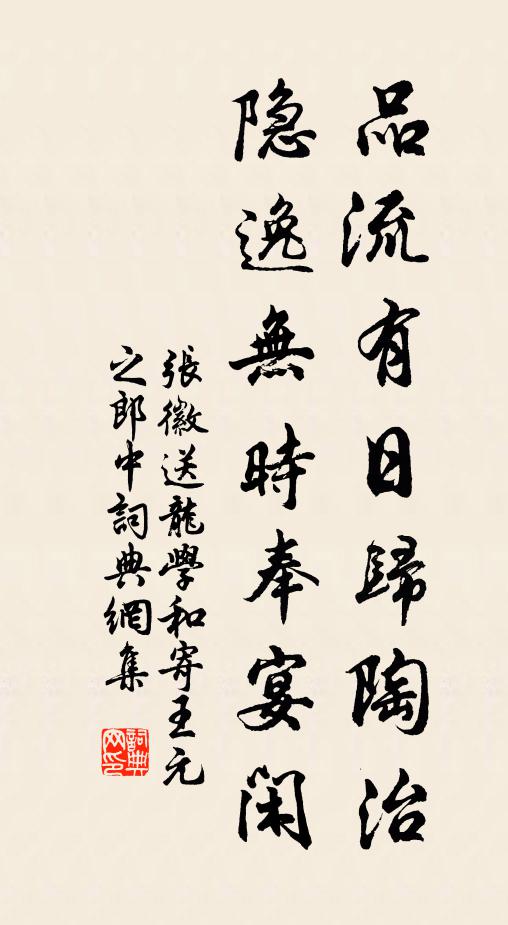 品流有日歸陶治
隐逸無時奉宴閑
張徽送龍學和寄王元
之郎中詞典網集
詞典網印